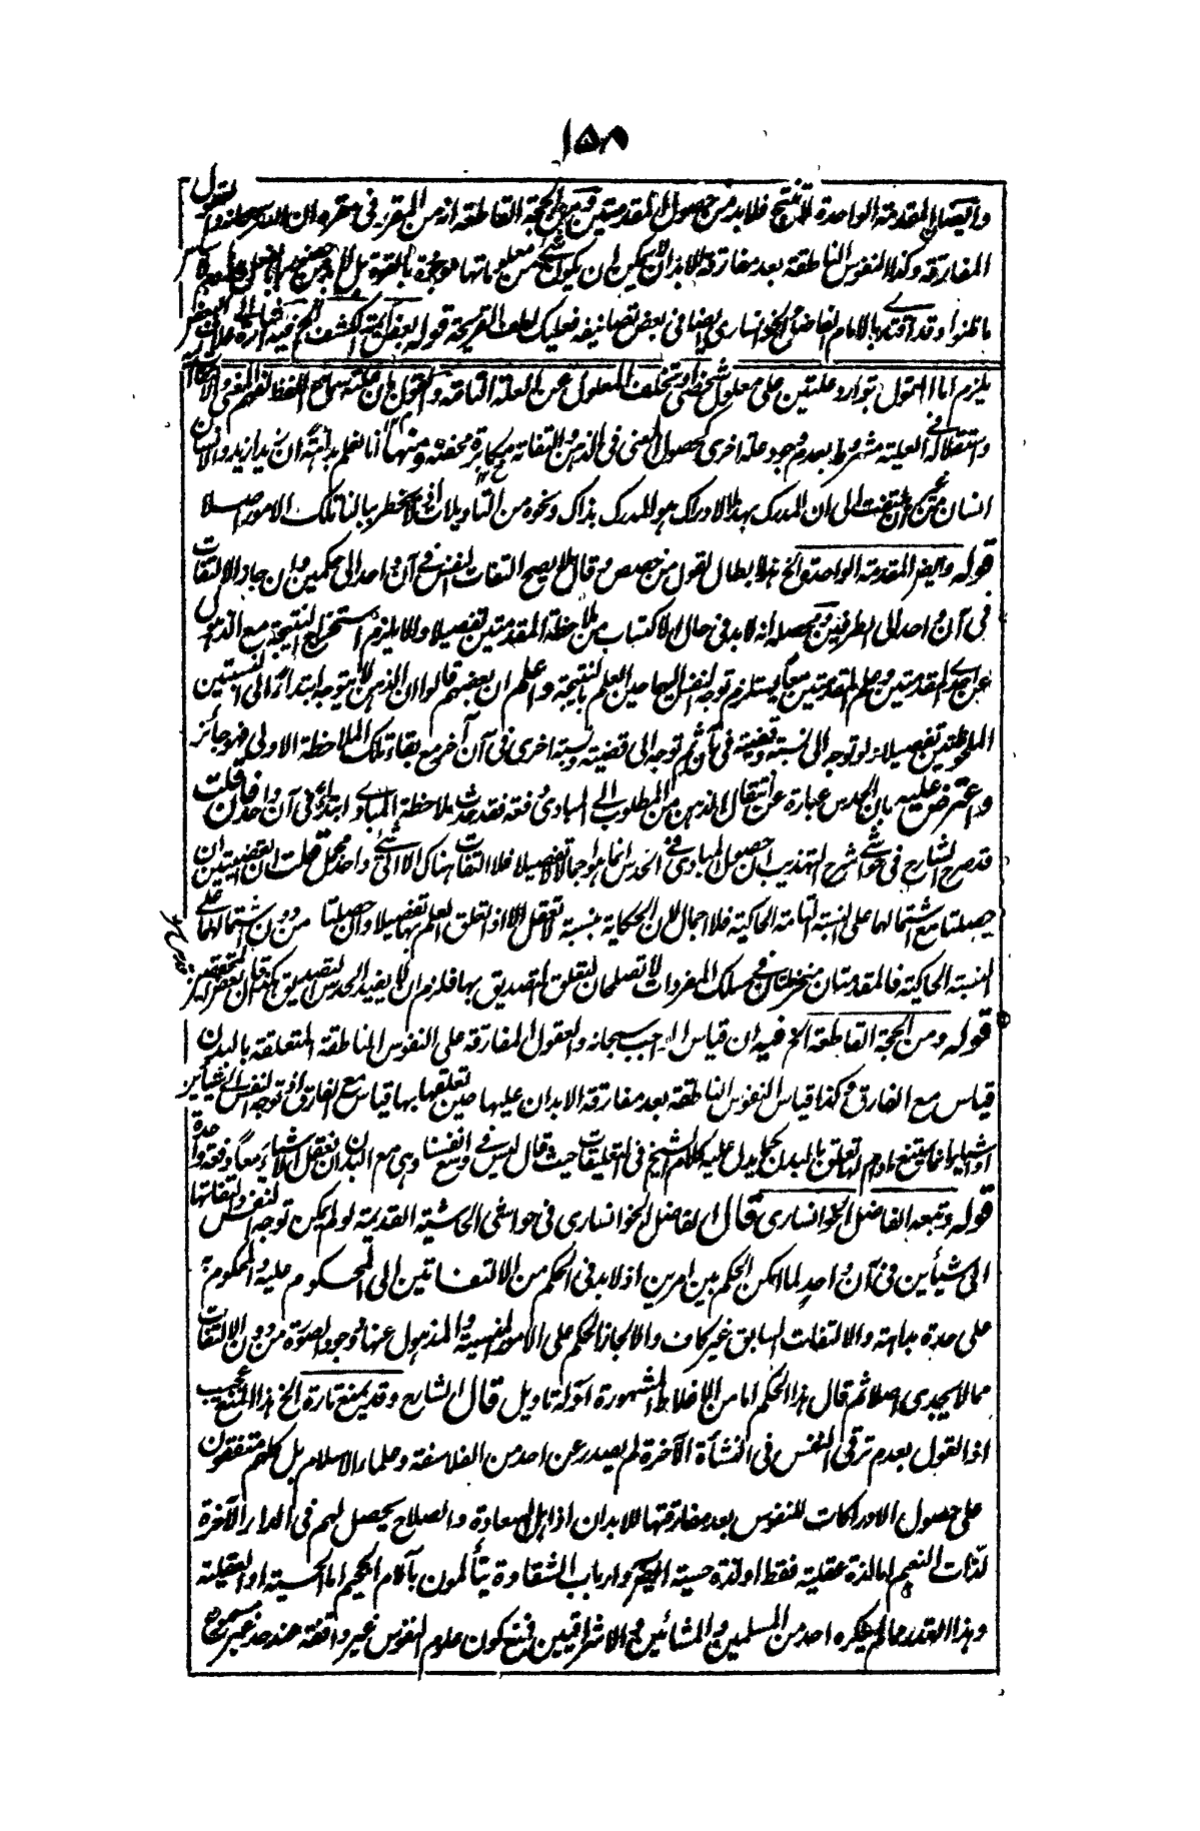 ١٥٨
وايضا المقدمة الواحدة لا تنتج فلا بد من حصول المقدمتين ومن الحجة القاطعة انه من المقرر في مقره ان الله سبحانه والعقول
المفارقة وكذا النفوس الناطقة بعد مفارقة الابدان لا يمكن ان يكون شيء من معلوماتها موجودة بالقوة بل لا بد من حضورها بالفعل
ما ظنوا وقد اقتدى بالامام الفاضل الخوانساري ايضا في بعض تصانيفه فعليك بلطف القريحة قوله
يلزم اما القول بتوارد علتين على معلول شخصي او تخلف المعلول عن العلة التامة والقول بان علية سماع اللفظ لفهم المعنى
واستقلاله في العلية مشروط بعدم وجود علة اخرى لحصول المعنى في الذهن والتفاته مكابرة محضة ومنها انا نعلم بداهة ان زيدا زيد والانسان
انسان من غير ان نلتفت الى ان المدرك بهذا الادراك هو المدرك بذاك ونحوه من التاويلات اذ لا يخطر ببالنا تلك الامور اصلا
قوله وايضا المقدمة الواحدة الخ هذا ابطال لقول من خصص وقال لا يصح التفات النفس في آن واحد الى حكمين وان جاز الالتفات
في آن واحد الى الطرفين ومحصله انه لا بد في حال الاكتساب من ملاحظة المقدمتين تفصيلا والا يلزم استخراج النتيجة مع الذهول
عن احدى المقدمتين وعلم المقدمتين معا يستلزم توجه النفس اليهما حين العلم بالنتيجة واعلم ان بعضهم قالوا ان الذهن لا يتوجه ابتداء الى النسبتين
الملحوظتين تفصيلا ولو توجه الى نسبة وقضية في آن ثم توجه الى قضية ونسبة اخرى في آن آخر مع بقاء تلك الملاحظة الاولى فهو جائز
واعترض عليه بان الحدس عبارة عن انتقال الذهن من المطلوب الى المبادي دفعة فقد حدث ملاحظة المبادي ابتداء في آن واحد فان قلت
قد صرح الشارح في حواشي شرح التهذيب ان حصول المبادي في الحدس انما هو اجمالا لا تفصيلا فلا التفات هناك الا الى شيء واحد مجمل قلت ان القضيتين ان
حصلتا مع اشتمالهما على النسبة التامة الحاكية فلا اجمال لان الحكاية بنسبة لا تعقل الا اذا تعلق العلم بها تفصيلا وان حصلتا من دون اشتمالهما على
النسبة الحاكية فالمقدمتان منخرطتان في مسلك المفردات لا تصلحان لتعلق التصديق بها فلزم ان لا يفيد الحدس التصديق كذا قال بعض المحققين
قوله ومن الحجة القاطعة الخ فيه ان قياس الواجب سبحانه والعقول المفارقة على النفوس الناطقة المتعلقة بالبدن
قياس مع الفارق وكذا قياس النفوس الناطقة بعد مفارقة الابدان عليها حين تعلقها بها قياس مع الفارق اذ توجه النفس الى شيئين
او اشياء انما يمتنع ما دام لها تعلق بالبدن كما يدل عليه كلام الشيخ في التعليقات حيث قال ليس في وسع انفسنا وهي مع البدن ان تعقل الاشياء معا دفعة واحدة
قوله وتبعه الفاضل الخوانساري قال الفاضل الخوانساري في حواشي الحاشية القديمة لو لم يمكن توجه النفس والتفاتها
الى شيئين في آن واحد لما امكن الحكم بين امرين اذ لا بد في الحكم من الالتفاتين الى المحكوم عليه والمحكوم به
على حدة بداهة والالتفات السابق غير كاف والا لجاز الحكم على الامور المنسية والمذهول عنها ووجود الصورة من دون الالتفات
مما لا يجدي اصلا ثم قال هذا الحكم اما من الاغلاط المشهورة او له تاويل قال الشارح وقد يمنع تارة الخ هذا المنع عجيب
اذ القول بعدم ترقي النفس في النشأة الآخرة لم يصدر عن احد من الفلاسفة وعلماء الاسلام بل كلهم متفقون
على حصول الادراكات للنفوس بعد مفارقتها للابدان اذ اهل السعادة والصلاح يحصل لهم في الدار الآخرة
لذات النعيم اما لذة عقلية فقط او لذة حسية ايضا وارباب الشقاوة يتألمون بآلام الجحيم اما الحسية او العقلية
وهذا القدر مما لم ينكره احد من المسلمين والمشائين والاشراقيين فمنع كون علوم النفوس غير واقفة عند حد غير مسموع